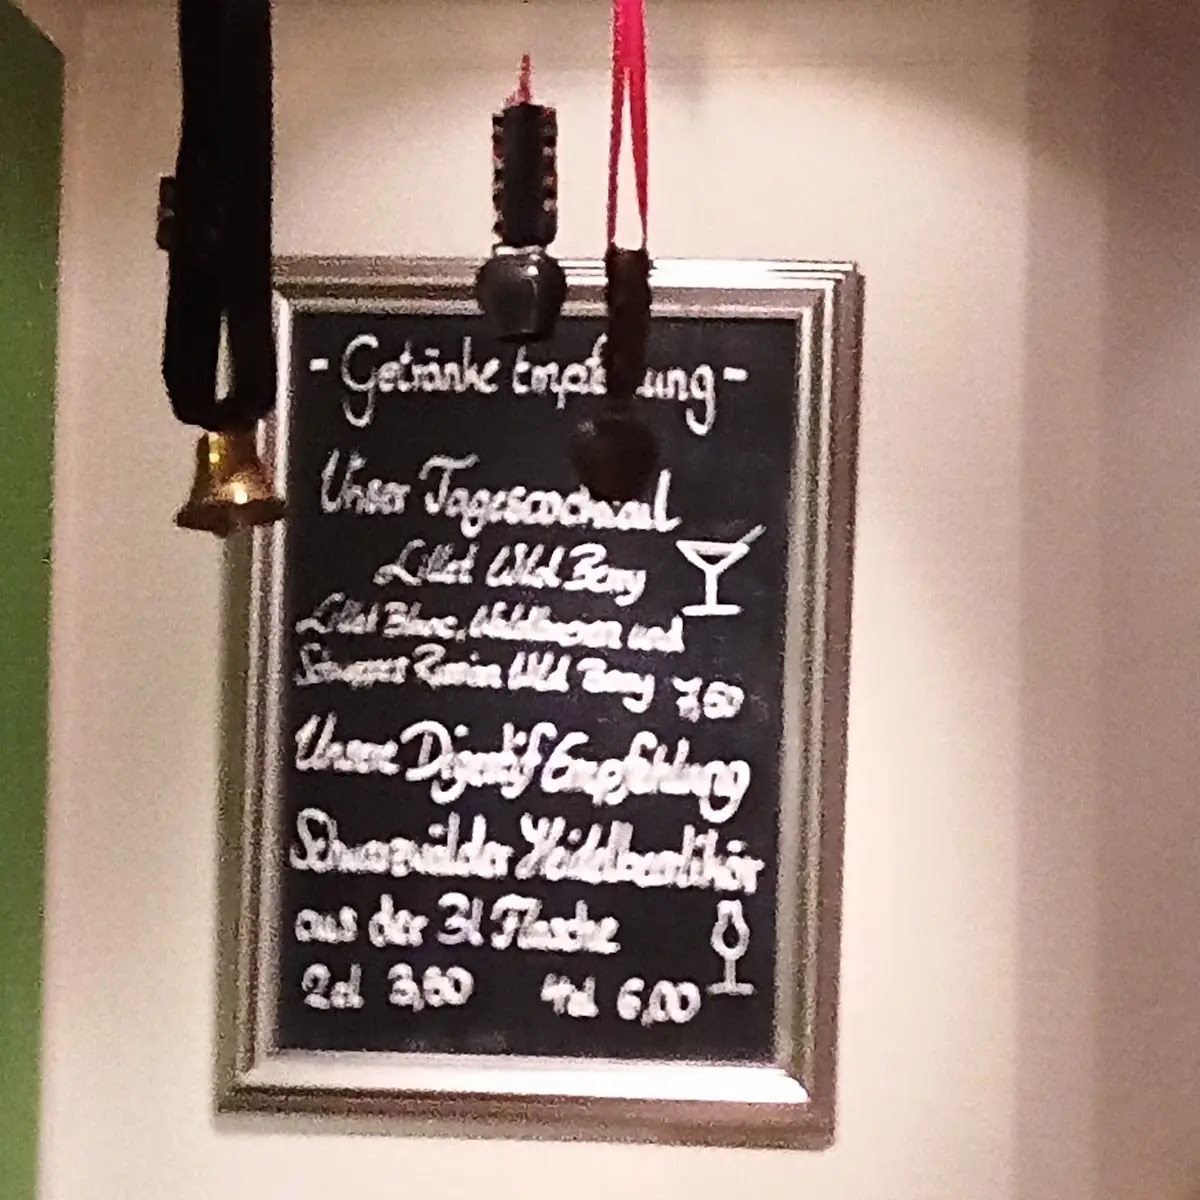 - Getränke Empfehlung -
Unser Tagescocktail
Lillet Wild Berry
Lillet Blanc, Waldbeeren und
Schweppes Russian Wild Berry 7,50
Unsere Digestif Empfehlung
Schwarzwälder Heidelbeerlikör
aus der 3l Flasche
2cl 3,50 4cl 6,00